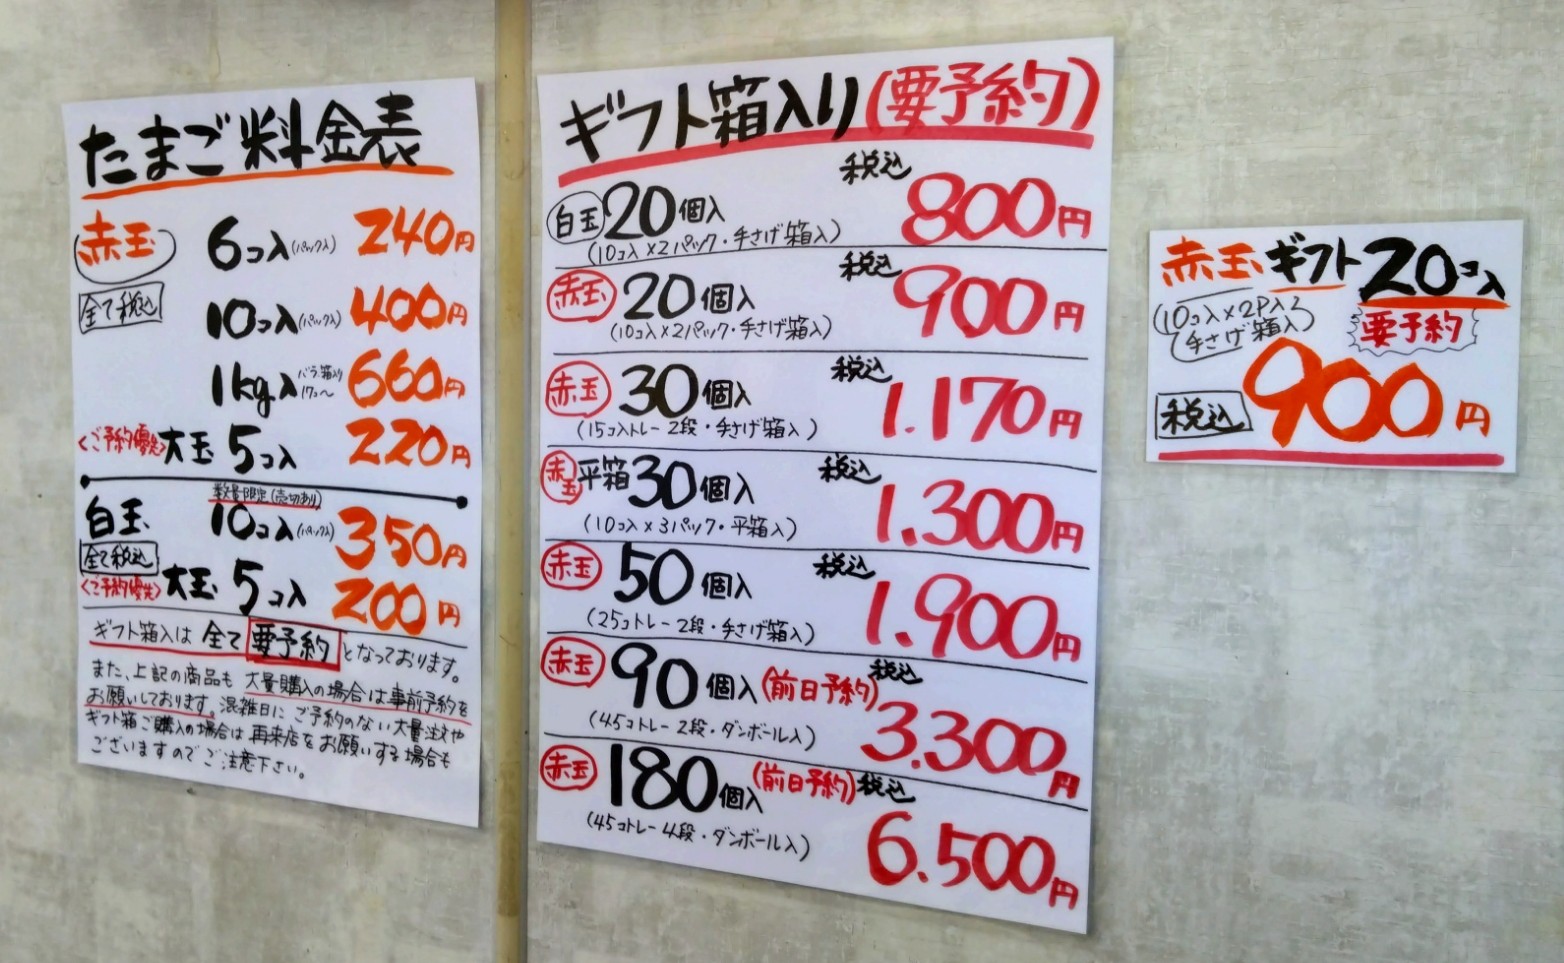 たまご料金表
赤玉 6コ入(パック入) 240円
全て税込 10コ入(パック入) 400円
1kg入 バラ・箱入り 17コ〜 660円
<ご予約優先>大玉 5コ入 220円
数量限定(売切あり)
白玉 10コ入(パック入) 350円
全て税込
<ご予約優先>大玉 5コ入 200円
ギフト箱入は 全て 要予約 となっております。
また、上記の商品も 大量購入の場合は事前予約を
お願いしております。混雑日に ご予約のない大量注文や
ギフト箱ご購入の場合は 再来店をお願いする場合も
ございますのでご注意下さい。
ギフト箱入り(要予約)
白玉 20個入 税込 800円
(10コ入×2パック・手さげ箱入)
赤玉 20個入 税込 900円
(10コ入×2パック・手さげ箱入)
赤玉 30個入 税込 1.170円
(15コ入トレー2段・手さげ箱入)
赤玉 平箱30個入 税込 1.300円
(10コ入×3パック・平箱入)
赤玉 50個入 税込 1.900円
(25コトレー2段・手さげ箱入)
赤玉 90個入(前日予約) 税込 3.300円
(45コトレー2段・ダンボール入)
赤玉 180個入(前日予約) 税込 6.500円
(45コトレー4段・ダンボール入)
赤玉ギフト20コ入
(10コ入×2P入 手さげ箱入) 要予約
税込 900円